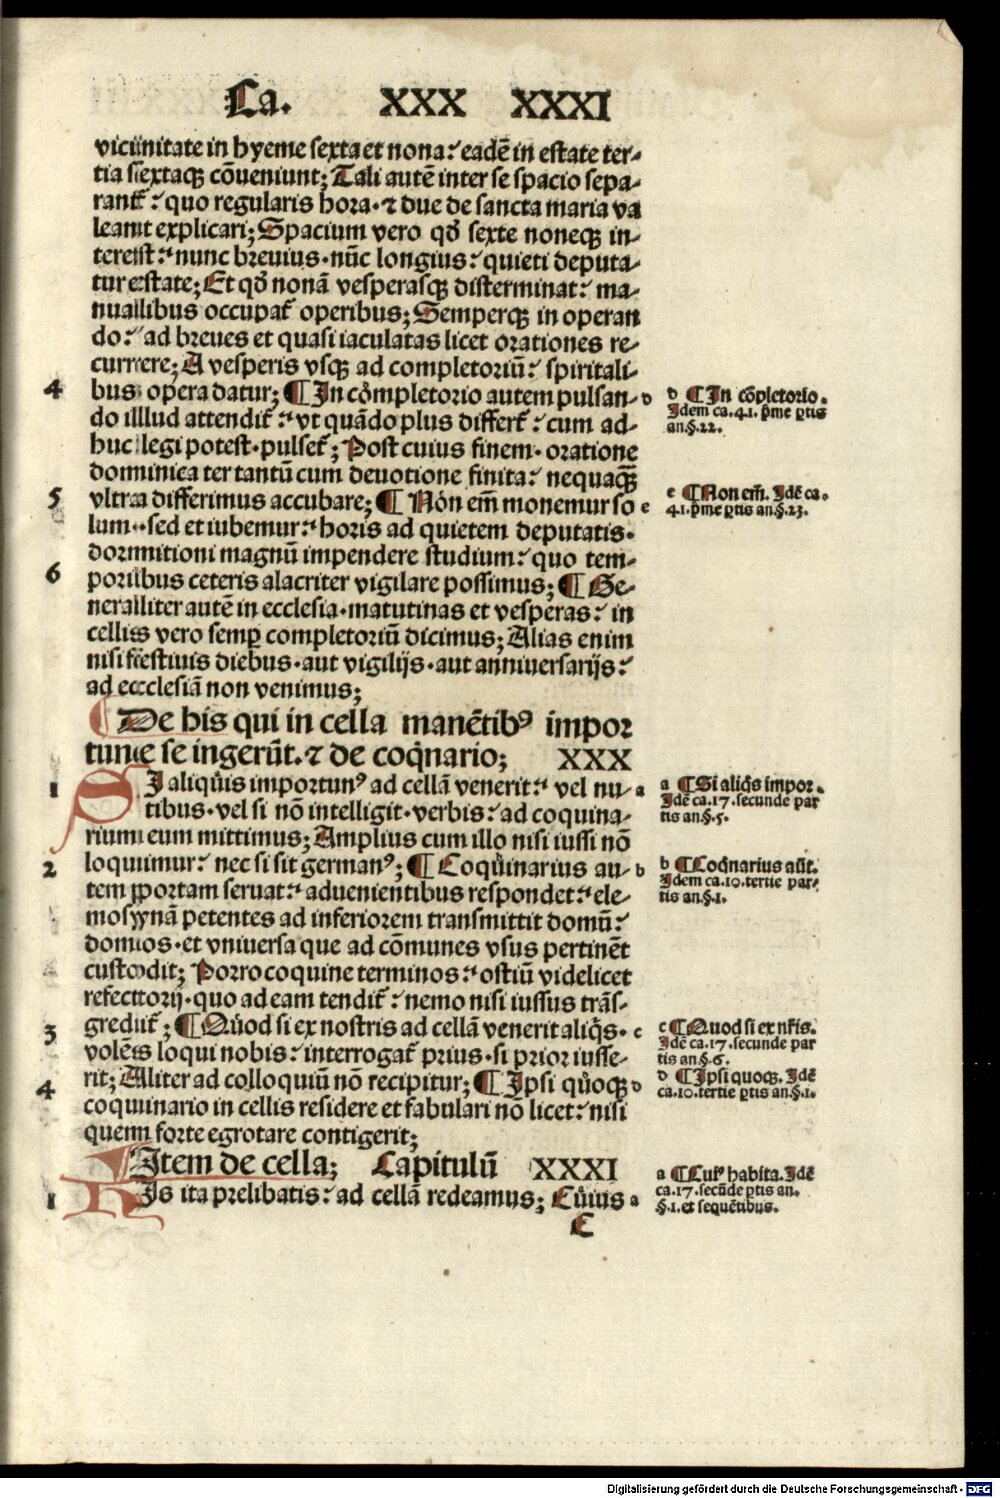 Ca. XXX XXXI
vicinitate in hyeme sexta et nona: eadē in estate ter-
tia sextaqꝫ cōueniunt; Tali autē inter se spacio sepa-
rant᷑: quo regularis hora· ⁊ due de sancta maria va
leant explicari; Spacium vero qđ sexte noneqꝫ in-
terest: nunc breuius· nūc longius: quieti deputa-
tur estate; Et qđ nonā vesperasqꝫ disterminat: ma-
nualibus occupat᷑ operibus; Semperqꝫ in operan
do: ad breues et quasi iaculatas licet orationes re-
currere; A vesperis vsqꝫ ad completoriū: spiritali-
4 bus opera datur; ¶ In cōmpletorio autem pulsan- d
do illud attendit᷑: vt quādo plus differt᷑: cum ad-
huc legi potest· pulset᷑; Post cuius finem· oratione
dominica ter tantū cum deuotione finita: nequaqꝫ̄
5 vltra differimus accubare; ¶ Non em̄ monemur so e
lum· sed et iubemur: horis ad quietem deputatis·
dormitioni magnū impendere studium: quo tem-
6 poribus ceteris alacriter vigilare possimus; ¶ Ge-
neraliter autē in ecclesia· matutinas et vesperas: in
cellis vero semꝑ completoriū dicimus; Alias enim
nisi festiuis diebus· aut vigilijs· aut anniuersarijs:
ad ecclesiā non venimus;
¶ De his qui in cella manētibꝰ impor
tune se ingerūt. ⁊ de coqͥnario; XXX
1 SI aliquis importunꝰ ad cellā venerit: vel nu- a
tibus· vel si nō intelligit· verbis: ad coquina-
rium eum mittimus; Amplius cum illo nisi iussi nō
2 loquimur: nec si sit germanꝰ; ¶ Coquinarius au- b
tem portam seruat: aduenientibus respondet: ele-
mosynā petentes ad inferiorem transmittit domū:
domos· et vniuersa que ad cōmunes vsus pertinēt
custodit; Porro coquine terminos: ostiū videlicet
refectorij· quo ad eam tendit᷑: nemo nisi iussus trās-
3 gredit᷑; ¶ Quod si ex nostris ad cellā venerit aliqͥs· c
volēs loqui nobis: interrogat᷑ prius· si prior iusse-
4 rit; Aliter ad colloquiū nō recipitur; ¶ Ipsi quoqꝫ d
coquinario in cellis residere et fabulari nō licet: nisi
quem forte egrotare contigerit;
¶ Item de cella; Capitulū XXXI
1 HIs ita prelibatis: ad cellā redeamus; Cuius a
C
d ¶ In cōpletorio.
Idem ca.41. p̄me ꝑtis
an.§.22.
e ¶ Non em̄. Idē ca.
41. p̄me ꝑtis an.§.23.
a ¶ Si aliqͥs impor.
Idē ca.17. secunde par
tis an.§.5.
b ¶ Coqͥnarius aūt.
Idem ca.10. tertie par-
tis an.§.1.
c ¶ Quod si ex nr̄is.
Idē ca.17. secunde par
tis an.§.6.
d ¶ Ipsi quoqꝫ. Idē
ca.10. tertie ꝑtis an.§.1.
a ¶ Cuiꝰ habita. Idē
ca.17. secūde ꝑtis an.
§.1. et sequētibus.
Digitalisierung gefördert durch die Deutsche Forschungsgemeinschaft - DFG